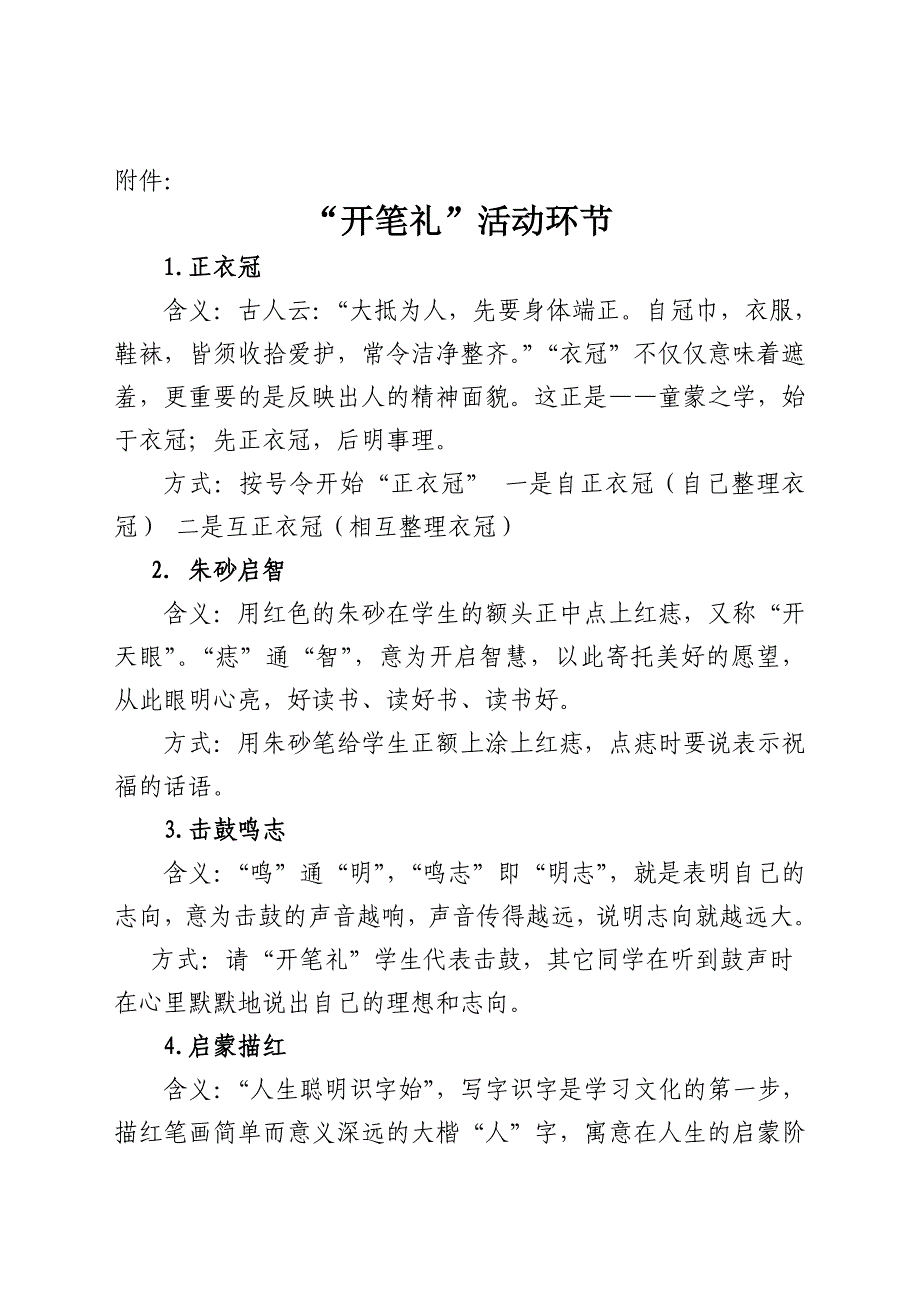 附件：
“开笔礼”活动环节
1.正衣冠
含义：古人云：“大抵为人，先要身体端正。自冠巾，衣服，
鞋袜，皆须收拾爱护，常令洁净整齐。”“衣冠”不仅仅意味着遮
羞，更重要的是反映出人的精神面貌。这正是——童蒙之学，始
于衣冠；先正衣冠，后明事理。
方式：按号令开始“正衣冠” 一是自正衣冠（自己整理衣
冠） 二是互正衣冠（相互整理衣冠）
2. 朱砂启智
含义：用红色的朱砂在学生的额头正中点上红痣，又称“开
天眼”。“痣”通“智”，意为开启智慧，以此寄托美好的愿望，
从此眼明心亮，好读书、读好书、读书好。
方式：用朱砂笔给学生正额上涂上红痣，点痣时要说表示祝
福的话语。
3.击鼓鸣志
含义：“鸣”通“明”，“鸣志”即“明志”，就是表明自己的
志向，意为击鼓的声音越响，声音传得越远，说明志向就越远大。
方式：请“开笔礼”学生代表击鼓，其它同学在听到鼓声时
在心里默默地说出自己的理想和志向。
4.启蒙描红
含义：“人生聪明识字始”，写字识字是学习文化的第一步，
描红笔画简单而意义深远的大楷“人”字，寓意在人生的启蒙阶